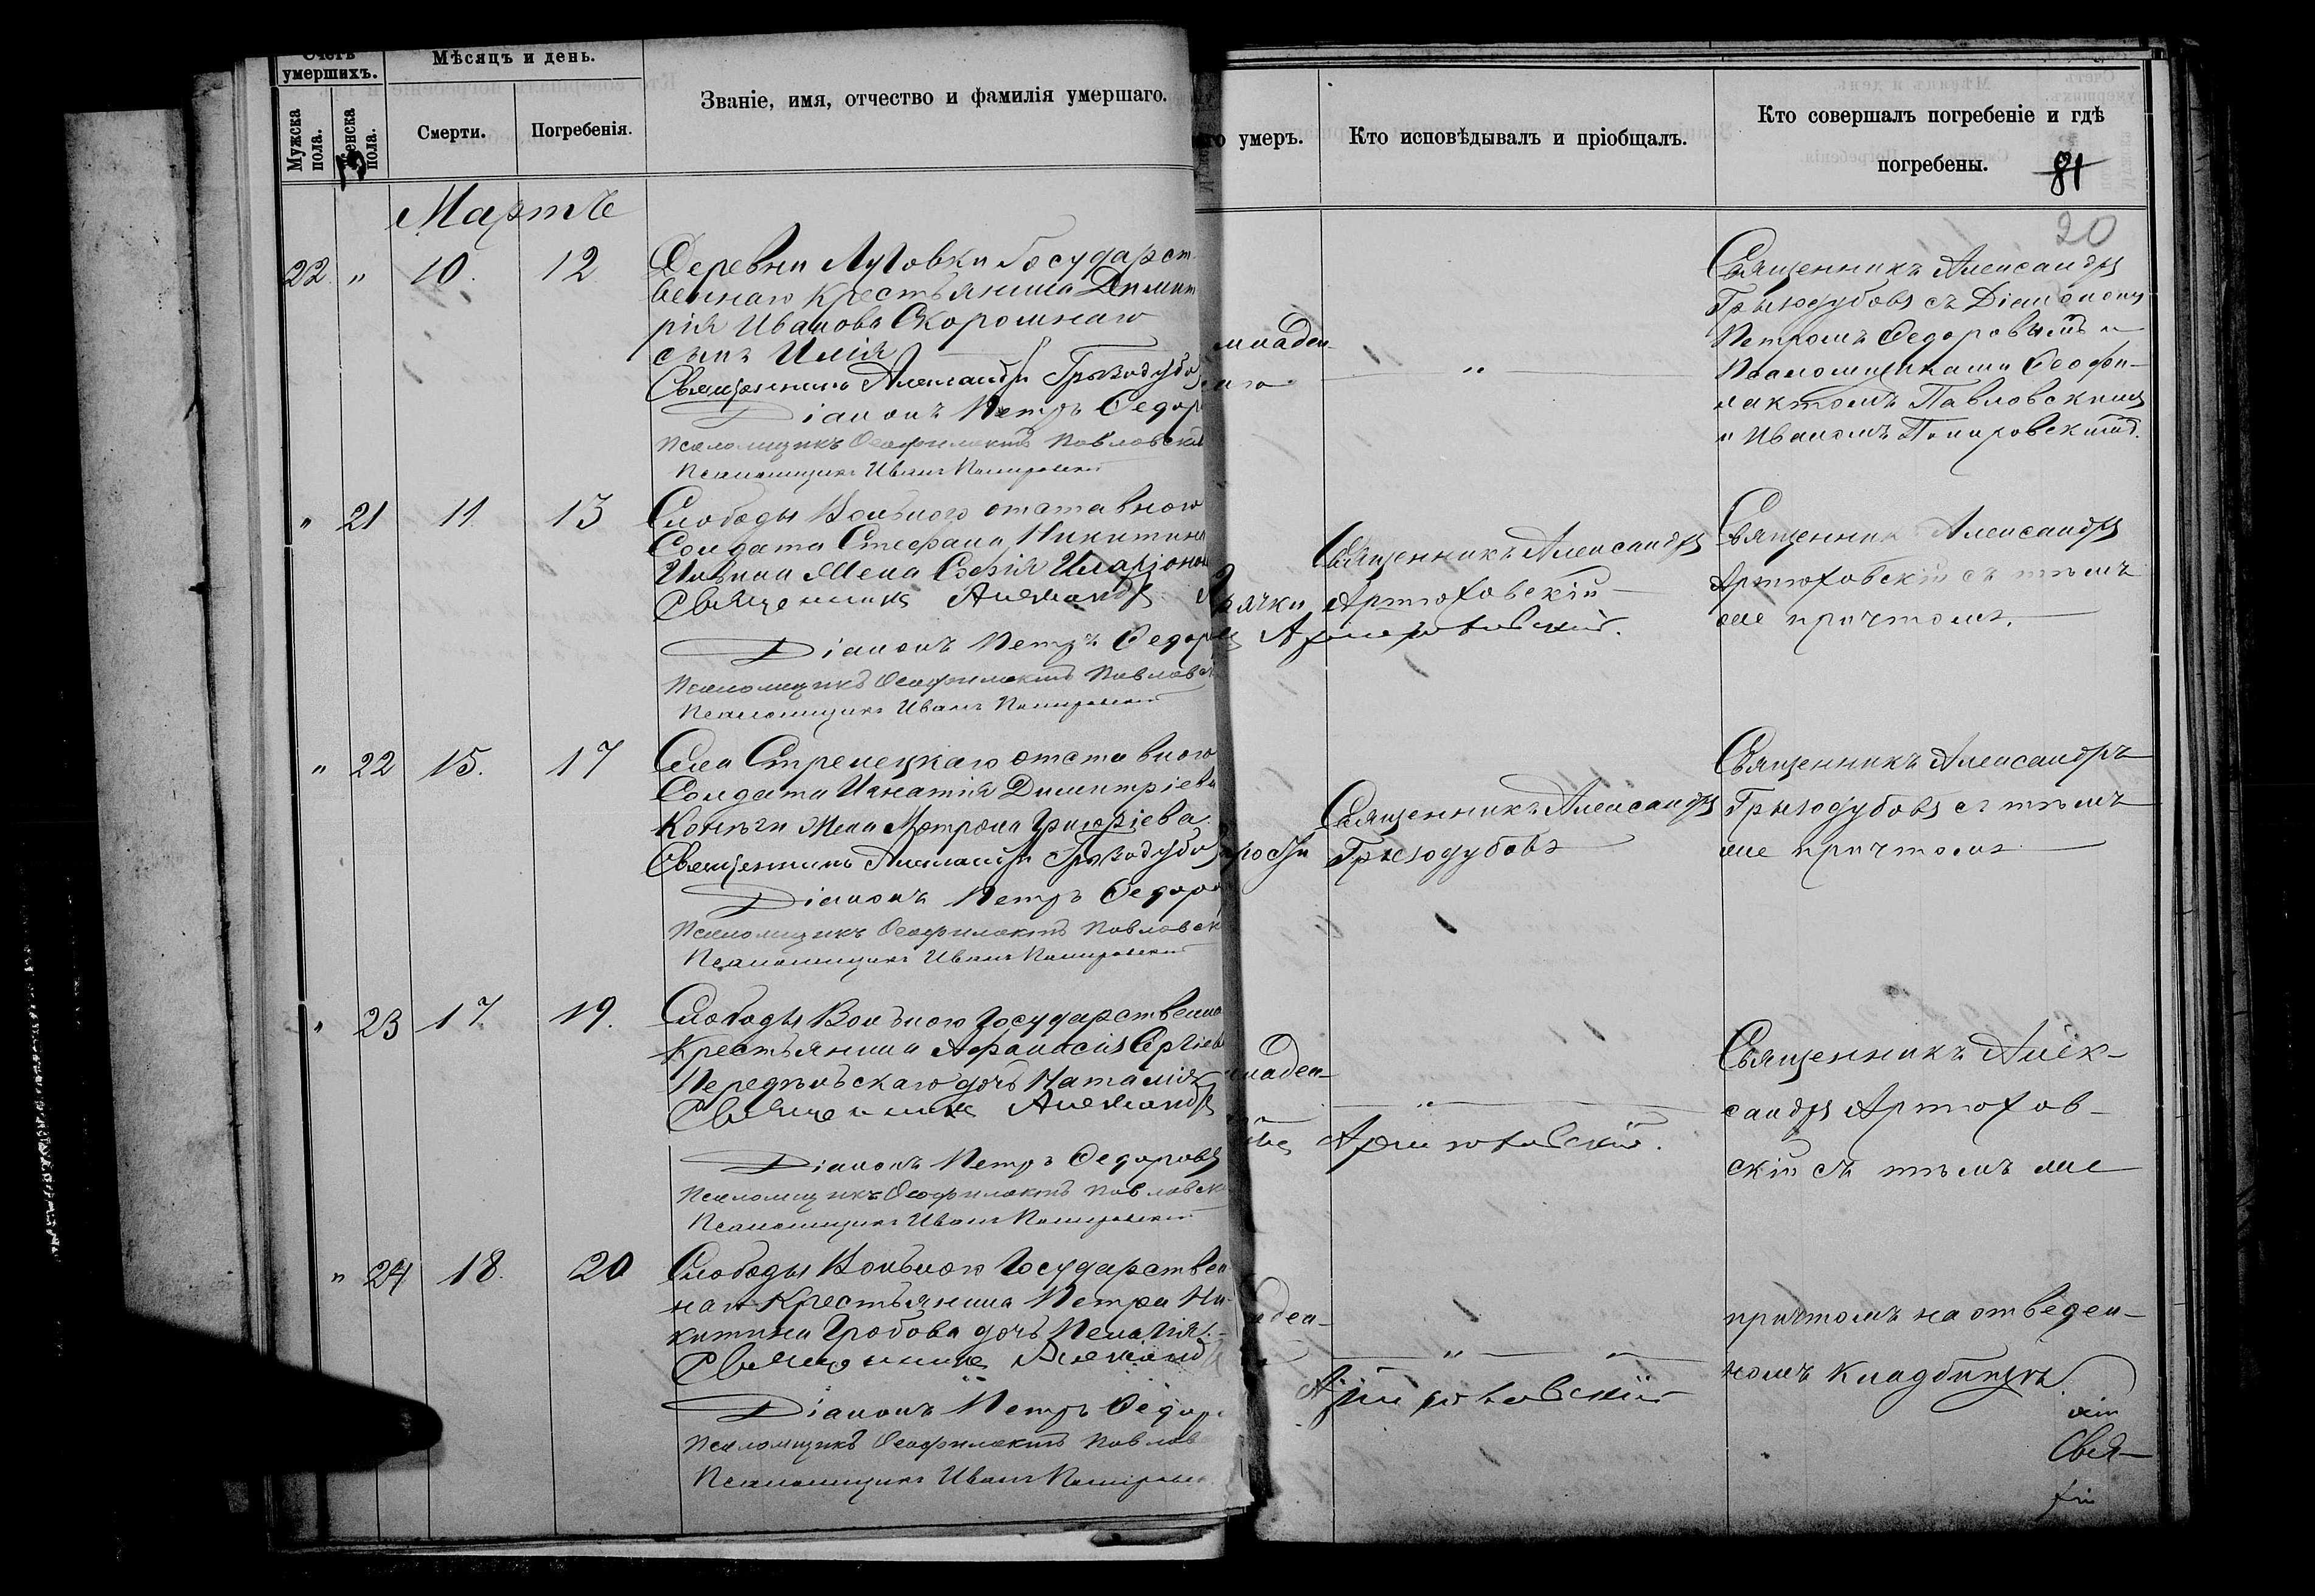 Счетъ умершихъ.
Мѣсяцъ и день.
Званіе, имя, отчество и фамилія умершаго.
Мужска пола.
Женска пола.
Смерти.
Погребенія.
го умеръ.
Кто исповѣдывалъ и пріобщалъ.
Кто совершалъ погребеніе и гдѣ
погребены.
81
20
Мартъ
22 " 10. 12
Деревни Луговки Государст
веннаго Крестьянина Димит
рія Иванова Скоромнаго
сынъ Илія
Священникъ Александръ Грызодубо
Діаконъ Петръ Федор
Псаломщикъ Феофилактъ Павловскі
Псаломщикъ Иванъ
младен
"
Священникъ Александръ
Грызодубовъ съ Діакономъ
Петромъ Федоровымъ и
Псаломщиками Феофи-
лактомъ Павловскимъ
и Иваномъ
" 21 11 13
Слободы Вольного отставного
Солдата Стефана Никитина
Ильина Жена Софія Иларіонов
Священникъ Александръ
Діаконъ Петръ Федоровъ
Псаломщикъ Феофилактъ Павловск
Псаломщикъ Иванъ
Священникъ Александръ
Артюховскій
Артюховскій.
Священникъ Александръ
Артюховскій съ тѣмъ
же причтомъ.
" 22 15. 17
Села Стрелецкаго отставного
Солдата Игнатія Димитріева
Жена Матрона Григоріева
Священникъ Александръ Грызодубо
Діаконъ Петръ Федоров
Псаломщикъ Феофилактъ Павловск
Псаломщикъ Иванъ
Священникъ Александръ
Грызодубовъ
Священникъ Александръ
Грызодубовъ съ тѣмъ
же причтомъ
" 23 17. 19.
Слободы Вольного Государственна
Крестьянина Афанасія Сергіев
дочь Наталія
Священникъ Александръ
Діаконъ Петръ Федоровъ
Псаломщикъ Феофилактъ Павловск
Псаломщикъ Иванъ
младен
"
Артюховскій.
Священникъ Алек-
сандръ Артюхов-
скій съ тѣмъ же
" 24 18. 20
Слободы Вольного Государствен
наго Крестьянина Петра Ни-
китина Гробова дочь Пелагія.
Священникъ Александръ
Діаконъ Петръ Федоро
Псаломщикъ Феофилактъ Павлов
Псаломщикъ Иванъ
аден
" "
Артюховскій
причтомъ на отведен-
номъ кладбищѣ.
Свя-